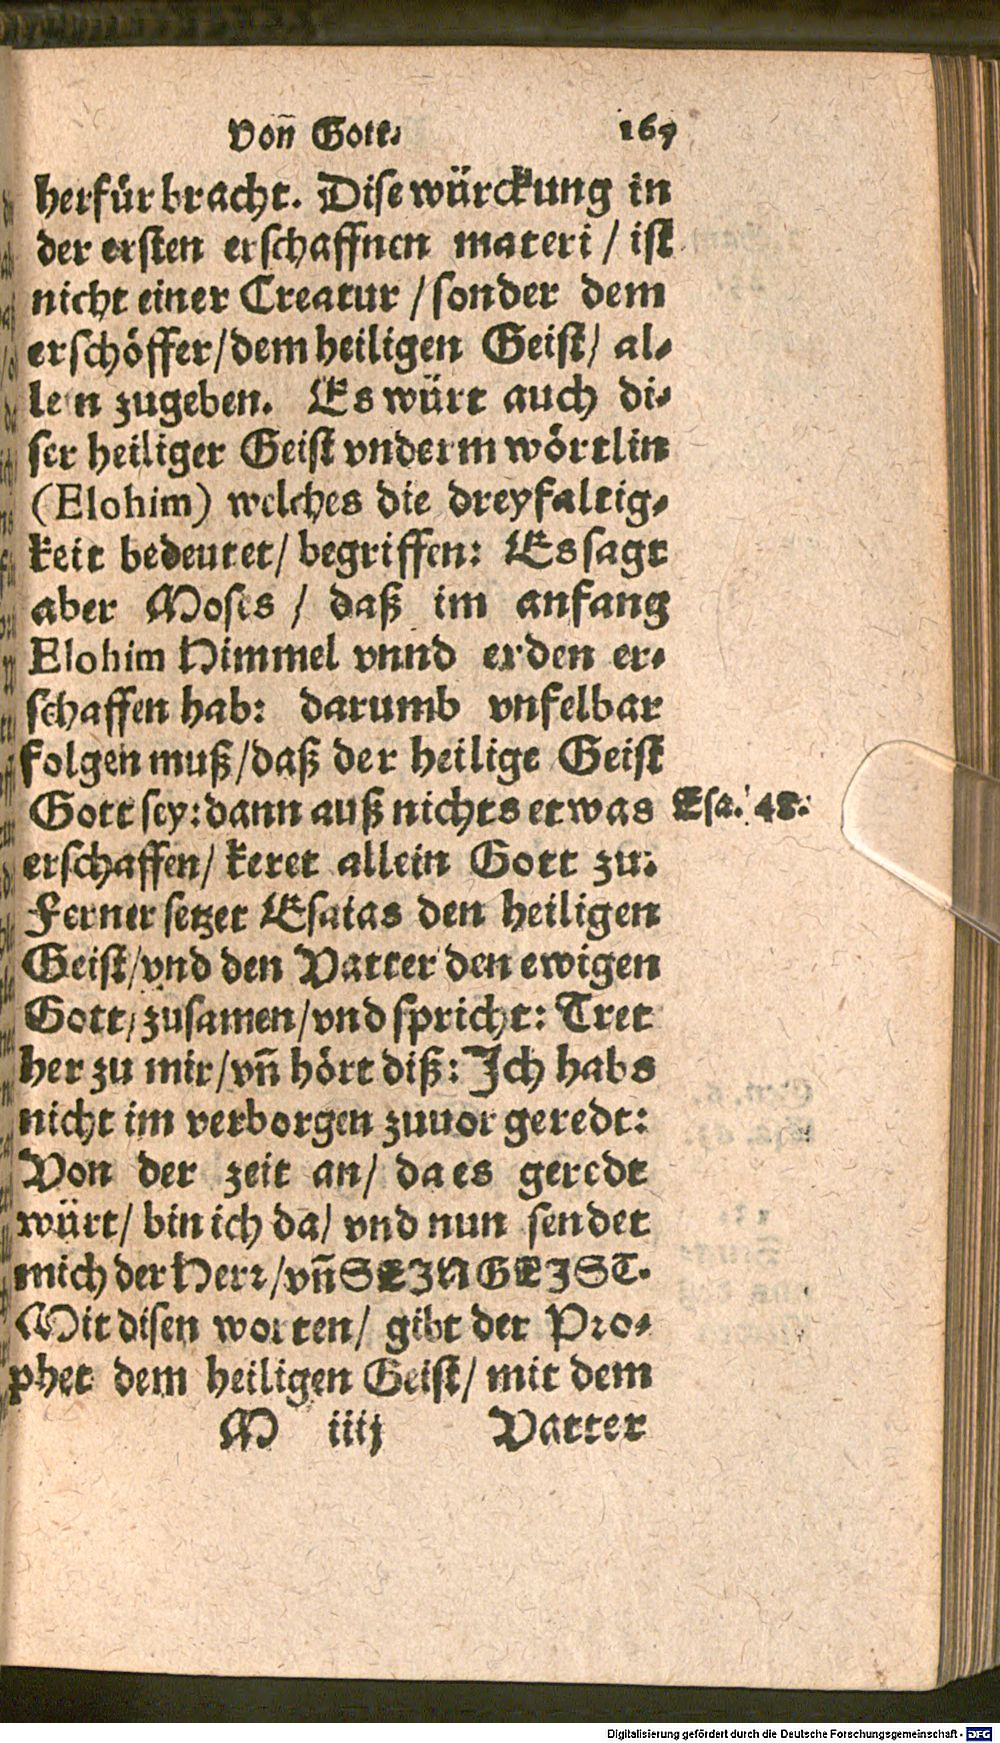 Von̄ Gott. 167
herfür bracht. Dise würckung in
der ersten erschaffnen materi / ist
nicht einer Creatur / sonder dem
erschöffer / dem heiligen Geist / al-
lein zugeben. Es würt auch di-
ser heiliger Geist vnderm wörtlin
(Elohim) welches die dreyfaltig-
keit bedeutet / begriffen: Es sagt
aber Moses / daß im anfang
Elohim Himmel vnnd erden er-
schaffen hab: darumb vnfelbar
folgen muß / daß der heilige Geist
Gott sey: dann auß nichts etwas Esa. 48.
erschaffen / keret allein Gott zu.
Ferner setzet Esaias den heiligen
Geist / vnd den Vatter den ewigen
Gott / zusamen / vnd spricht: Tret
her zu mir / vn̄ hört diß: Ich habs
nicht im verborgen zuuor geredt:
Von der zeit an / da es geredt
würt / bin ich da / vnd nun sendet
mich der Herr / vn̄ SEIN GEIST.
Mit disen worten / gibt der Pro-
phet dem heiligen Geist / mit dem
M iiij Vatter
Digitalisierung gefördert durch die Deutsche Forschungsgemeinschaft - DFG